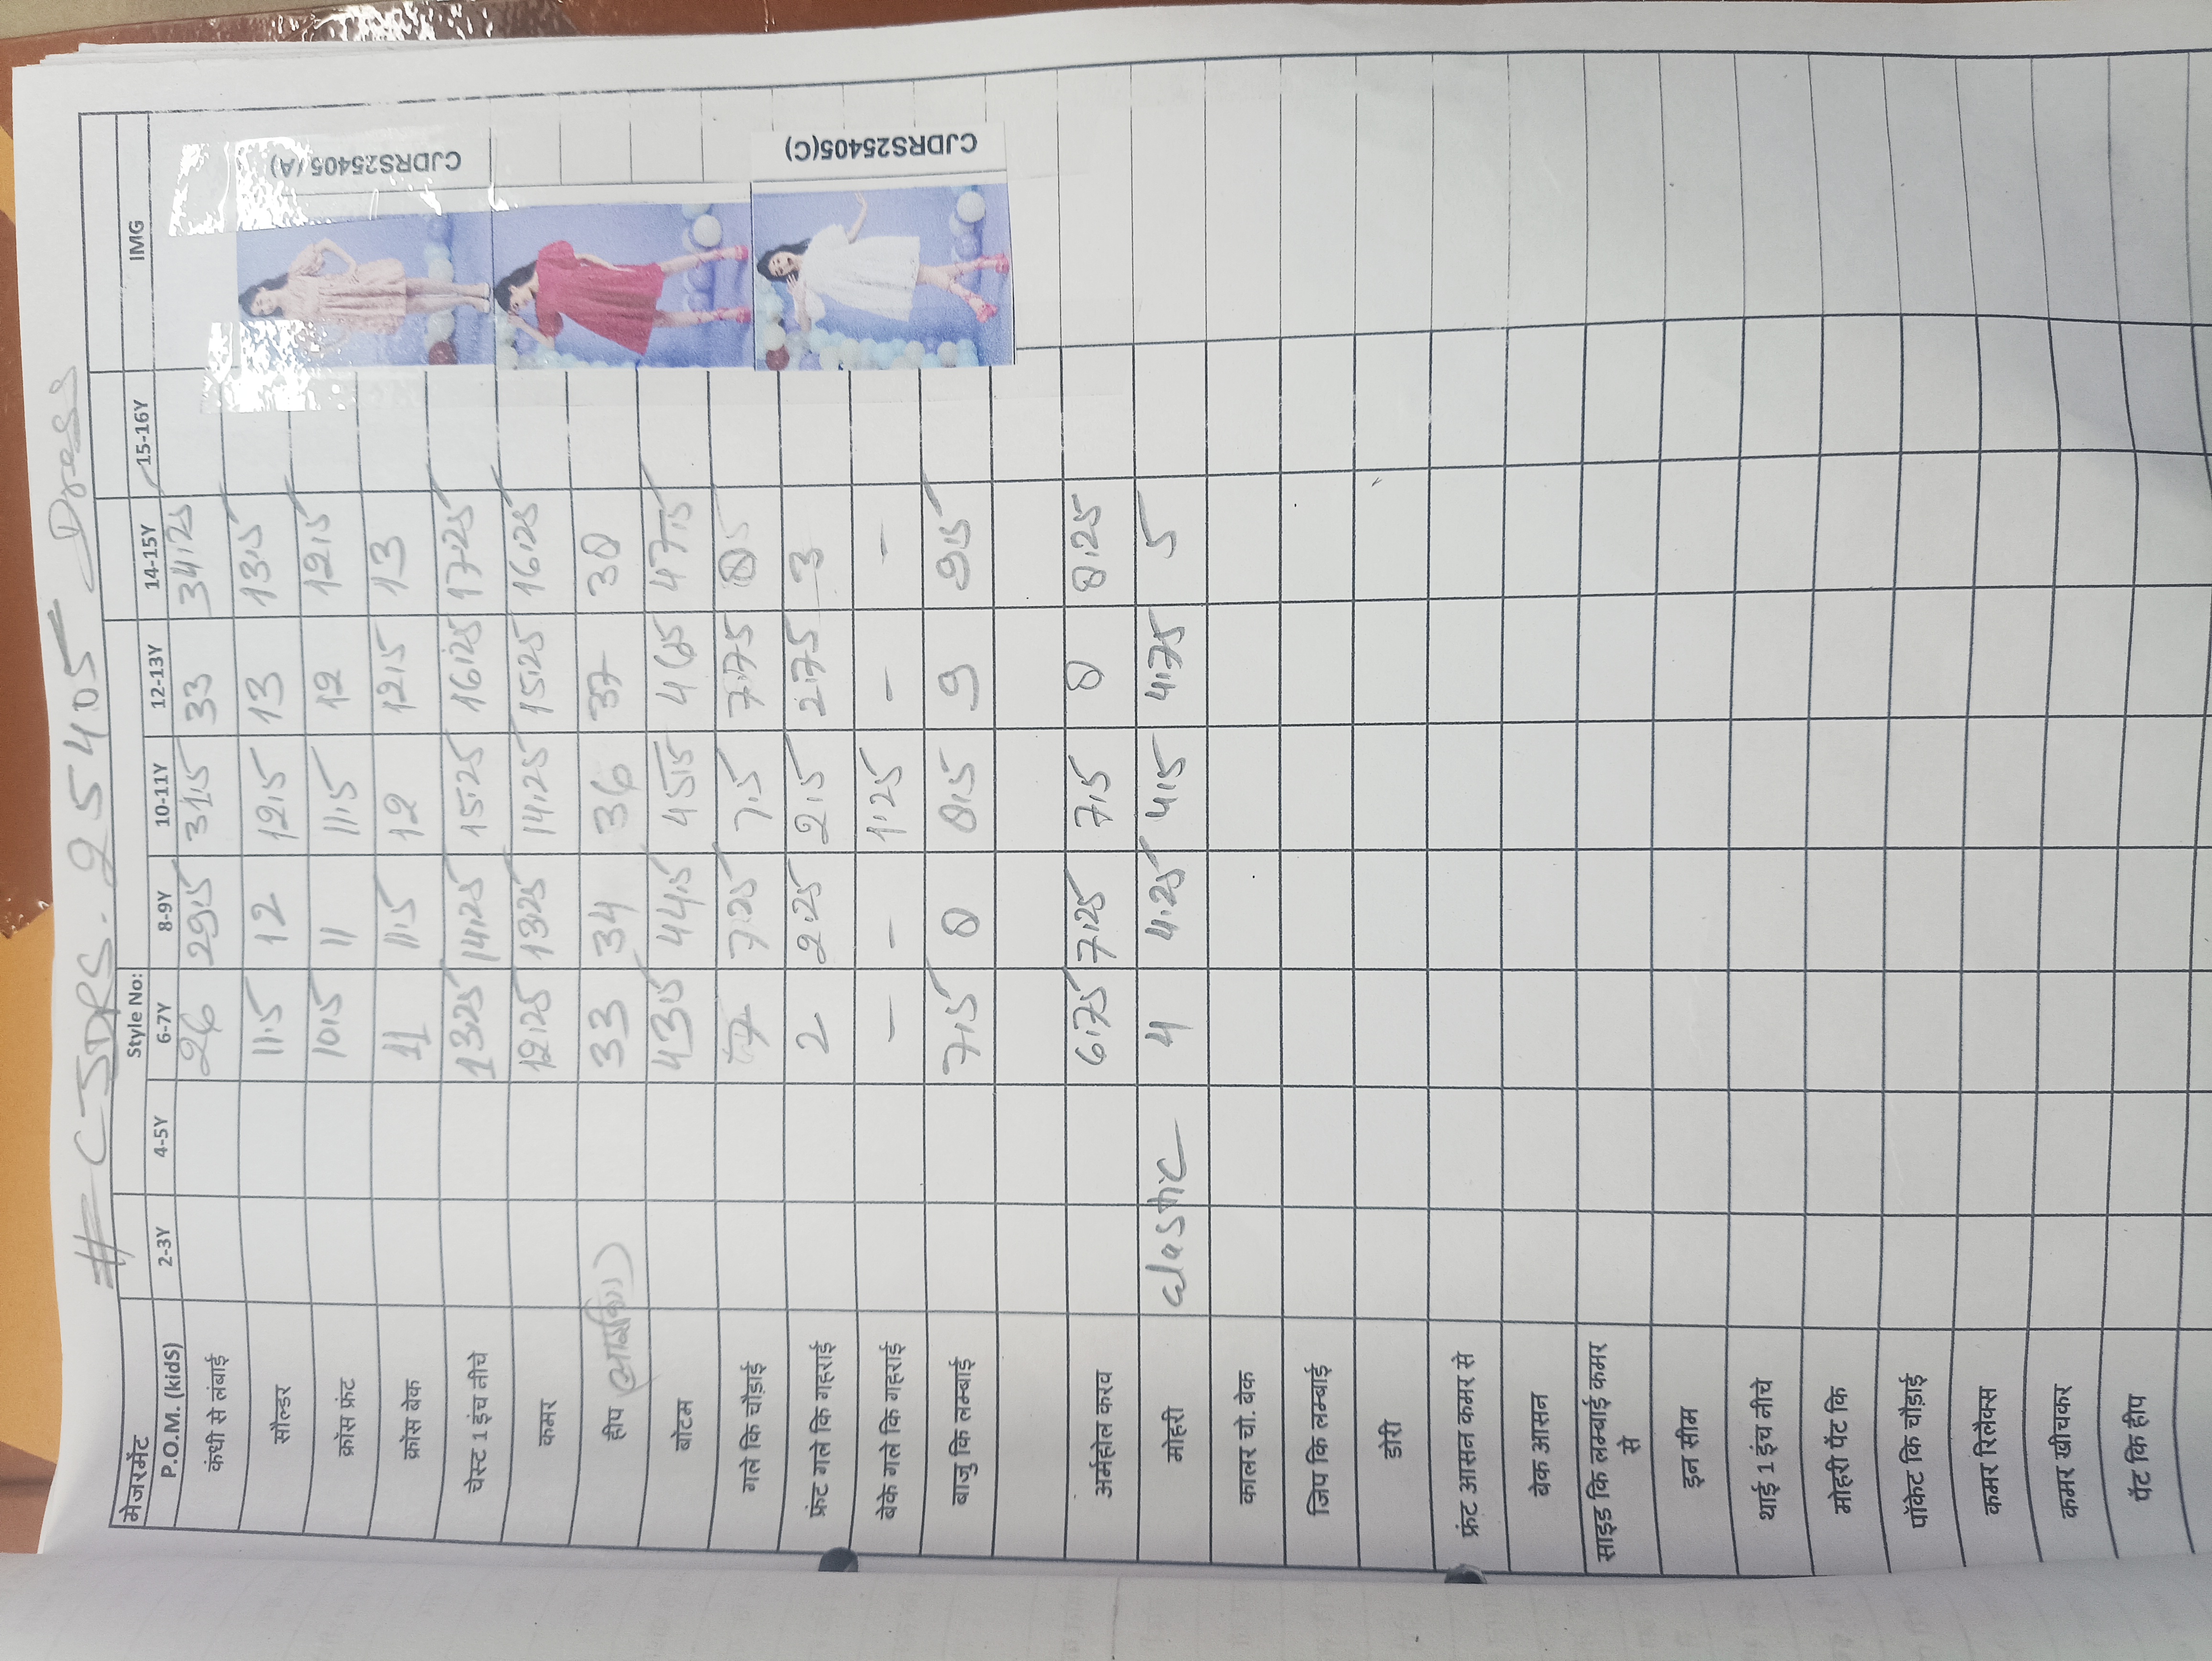 # CJDRS. 25405 Dress
मेजरमेंट Style No: IMG
P.O.M. (kidS) 2-3Y 4-5Y 6-7Y 8-9Y 10-11Y 12-13Y 14-15Y 15-16Y
कंधी से लंबाई 26 29.5 31.5 33 34.25
सौल्डर 11.5 12 12.5 13 13.5
क्रॉस फ्रंट 10.5 11 11.5 12 12.5
क्रॉस बेक 11 11.5 12 12.5 13
चेस्ट 1 इंच नीचे 13.25 14.25 15.25 16.25 17.25
कमर 12.25 13.25 14.25 15.25 16.25
हीप 33 34 36 37 38
बोटम 43.5 44.5 45.5 46.5 47.5
गले कि चौड़ाई 7 7.25 7.5 7.75 8
फ्रंट गले कि गहराई 2 2.25 2.5 2.75 3
बेके गले कि गहराई - - 1.25 - -
बाजु कि लम्बाई 7.5 8 8.5 9 9.5
अर्महोल करव 6.75 7.25 7.5 8 8.25
मोहरी elastic 4 4.25 4.5 4.75 5
कालर चो. बेक
जिप कि लम्बाई
डोरी
फ्रंट आसन कमर से
बेक आसन
साइड कि लम्बाई कमर
से
इन सीम
थाई 1 इंच नीचे
मोहरी पेंट कि
पॉकेट कि चौड़ाई
कमर रिलैक्स
कमर खीचकर
पेंट कि हीप
CJDRS25405 (A)
CJDRS25405(C)